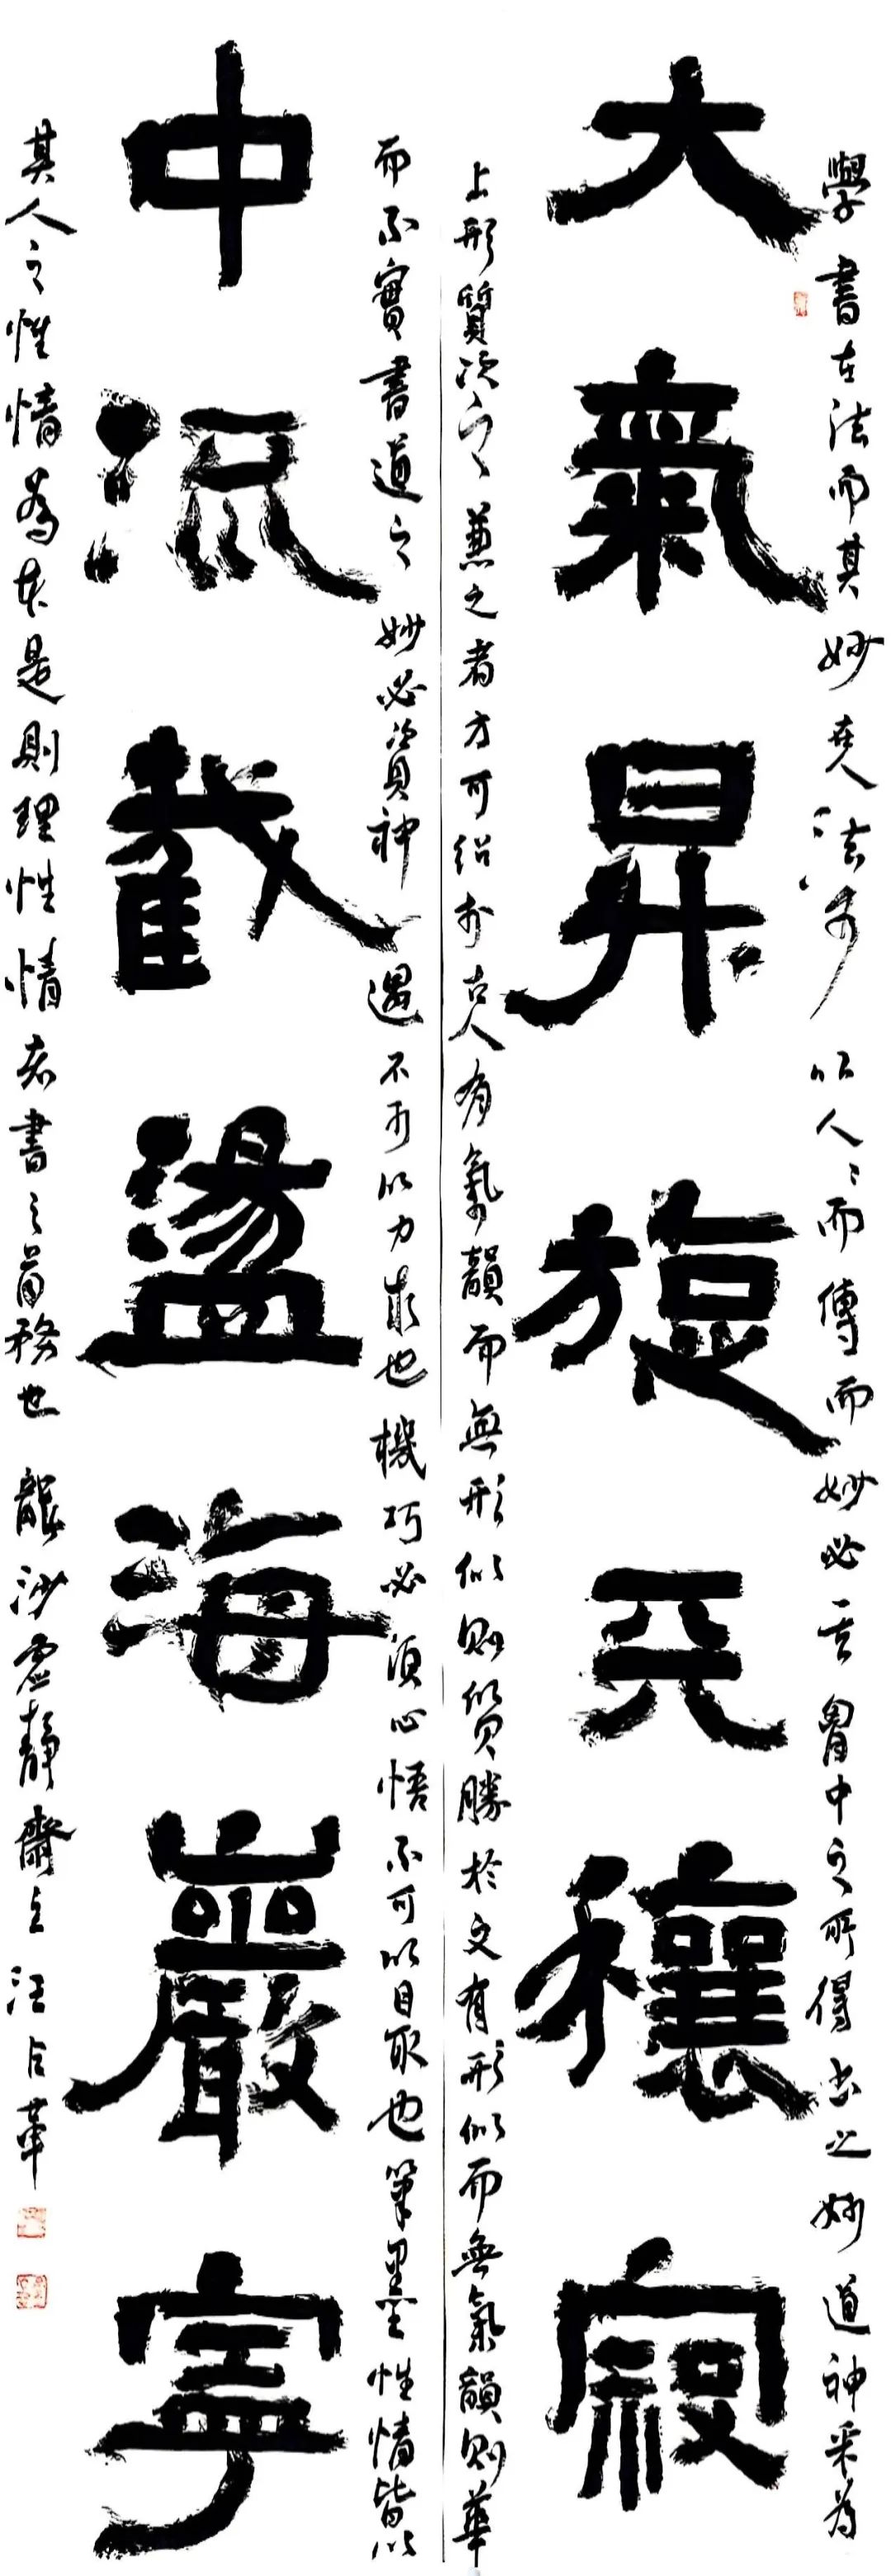 學書在法而其妙在人法可以人人而傳而妙必其胸中之所得書之妙道神采為
大氣昇旋天穰寂
上形質次之兼之者方可紹於古人有氣韻而無形似則質勝於文有形似而無氣韻則華
而不實書道之妙必資神遇不可以力求也機巧必須心悟不可以目取也筆墨性情皆以
中流截盪海嚴寧
其人之性情為本是則理性情者書之首務也 龍沙虛靜齋主汪占華